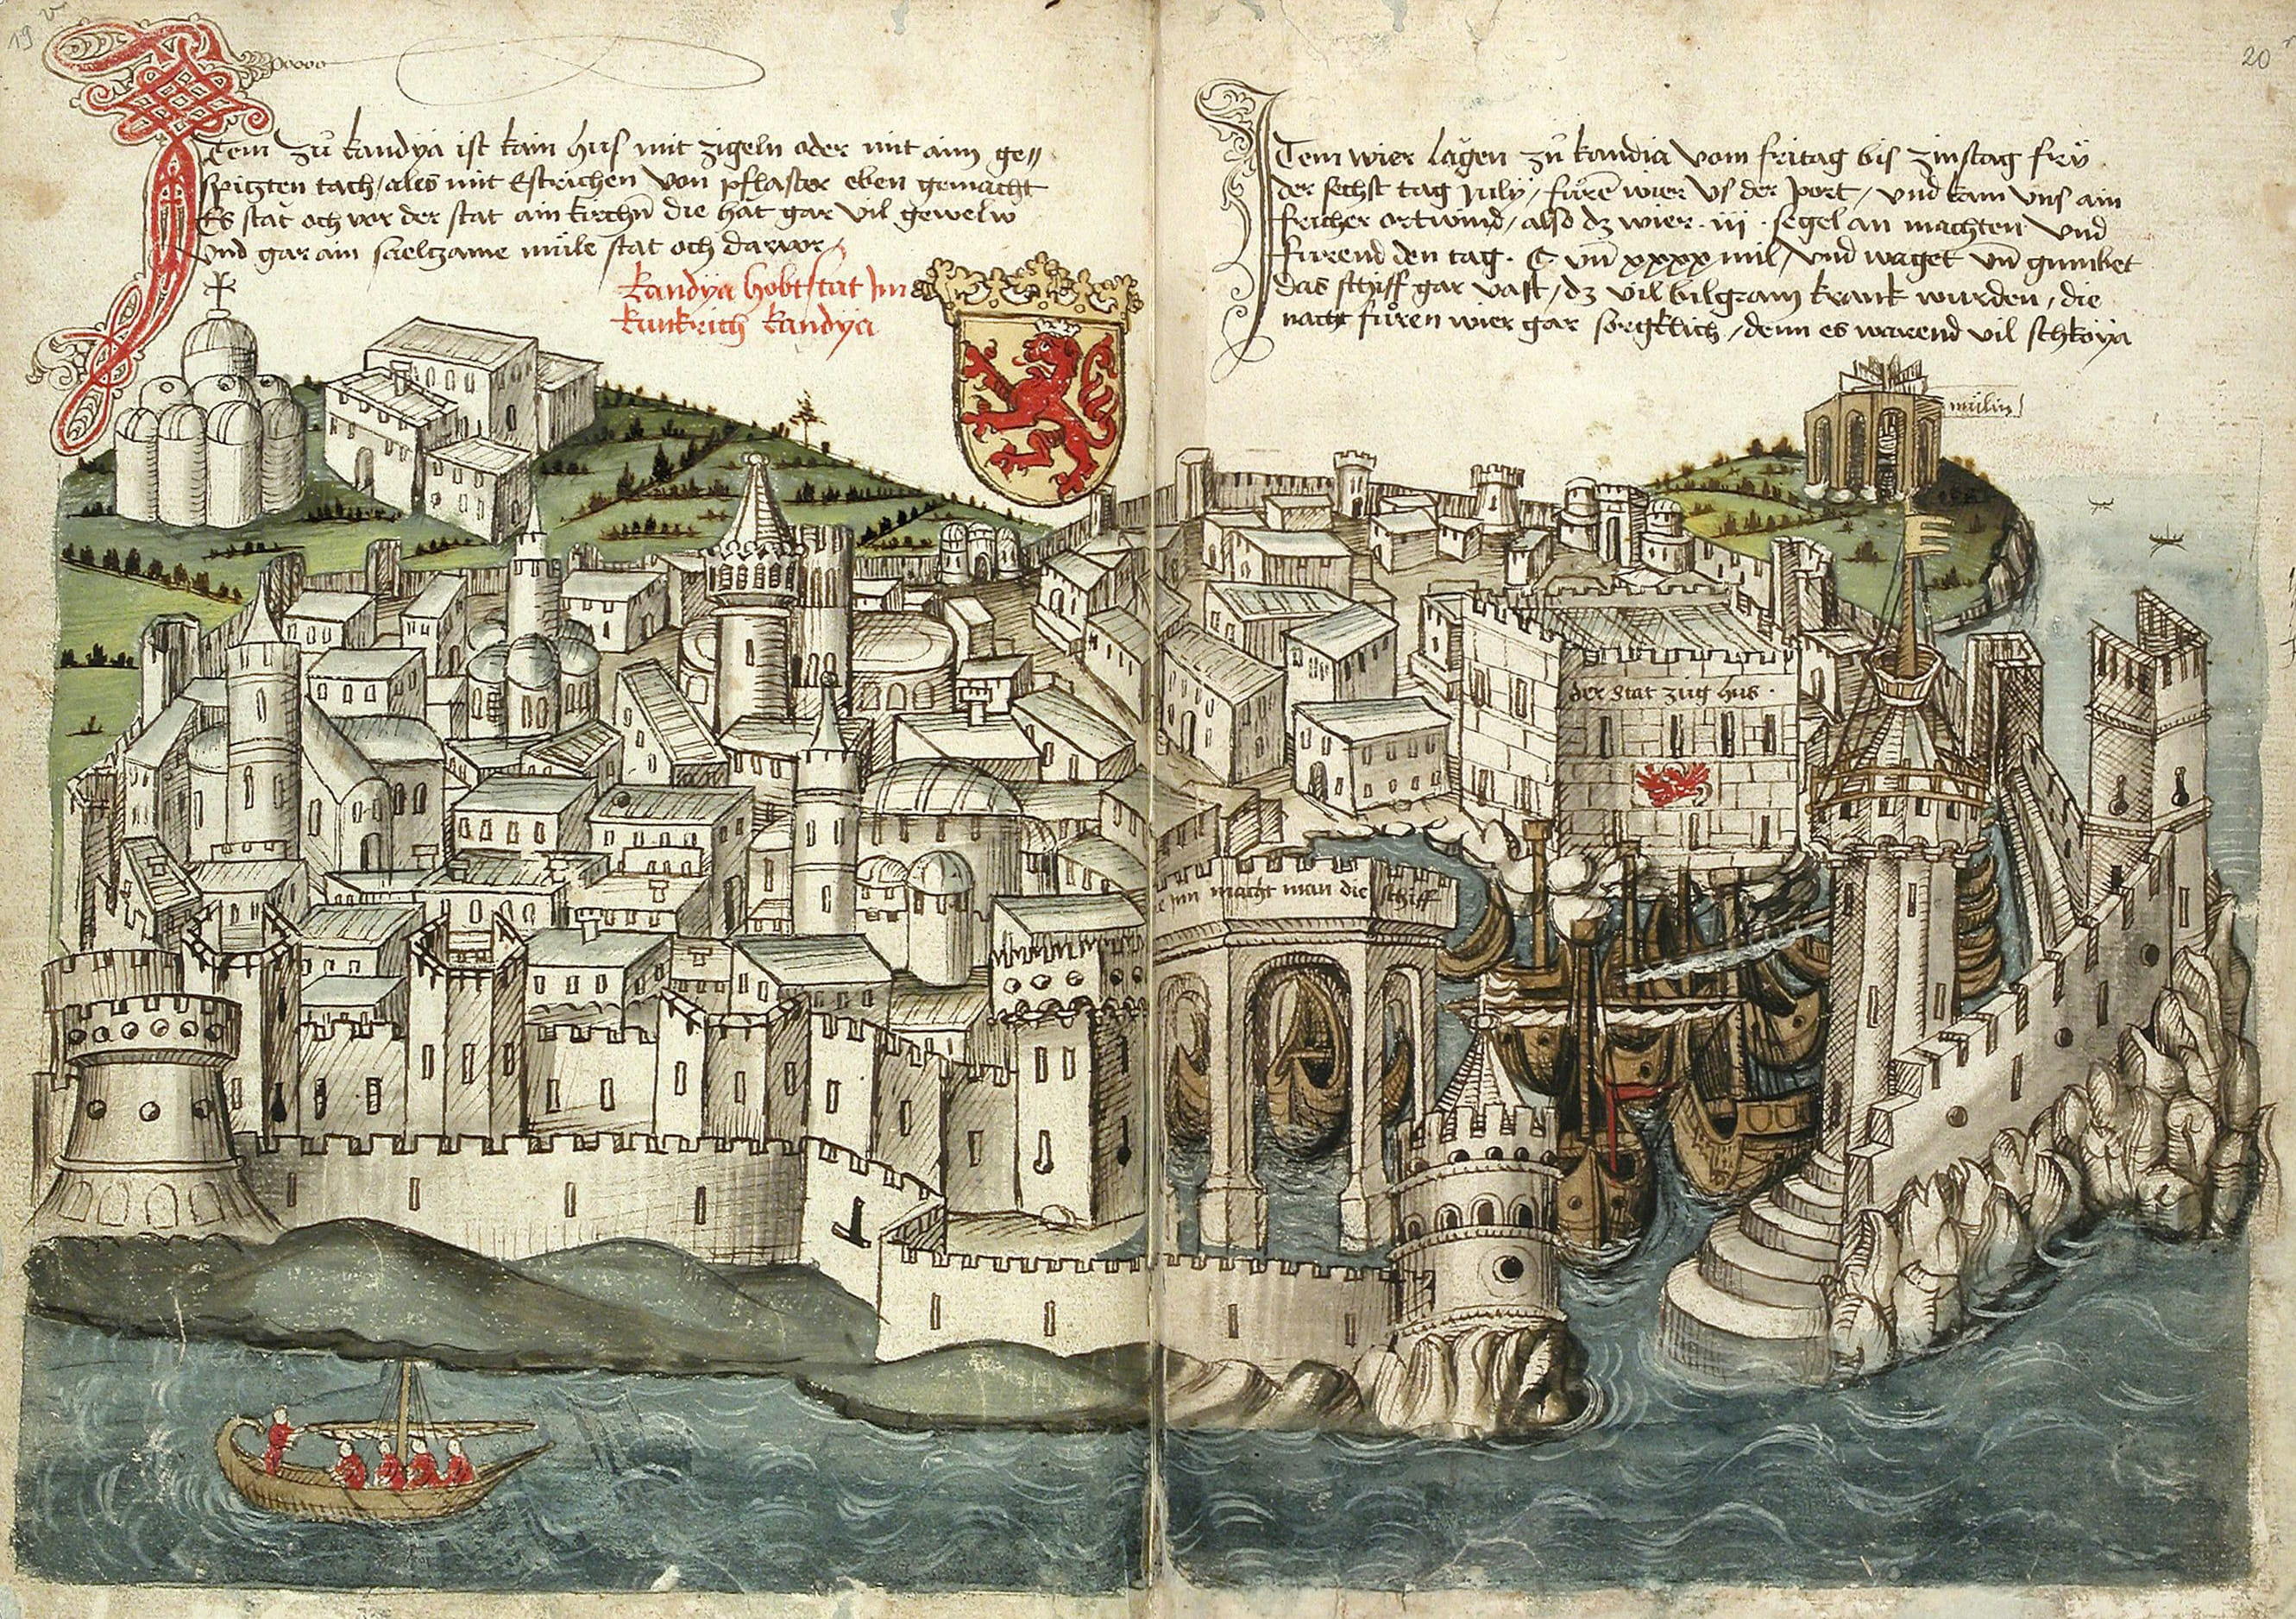 19 v
Item zů kandya ist kain hus mit zigeln oder mit aim ge//
spitzten tach/ ales mit Estrichen von pflaster eben gemacht
Es stat och vor der stat ain kirchñ die hat gar vil gewelw
und gar ain saeltzame mule stat och darvor
kandya hobtstat im
kunkrich kandya
20 r
Item wier lagen zů kandia vom fritag bis zinstag frů
der sechst tag July / fůrẽ wier us der port / und kam uns ain
fricher ortwind / also dz wier · iii · segel an machten und
furend den tag · C uñ xxxx mil / und waget uñ gumbet
das schiff gar vast / dz vil bilgram kranck wurden / die
nacht fůren wier gar sorgklich / denn es warend vil schkoya
mülin
der stat züg hus ·
inn macht man die schiff